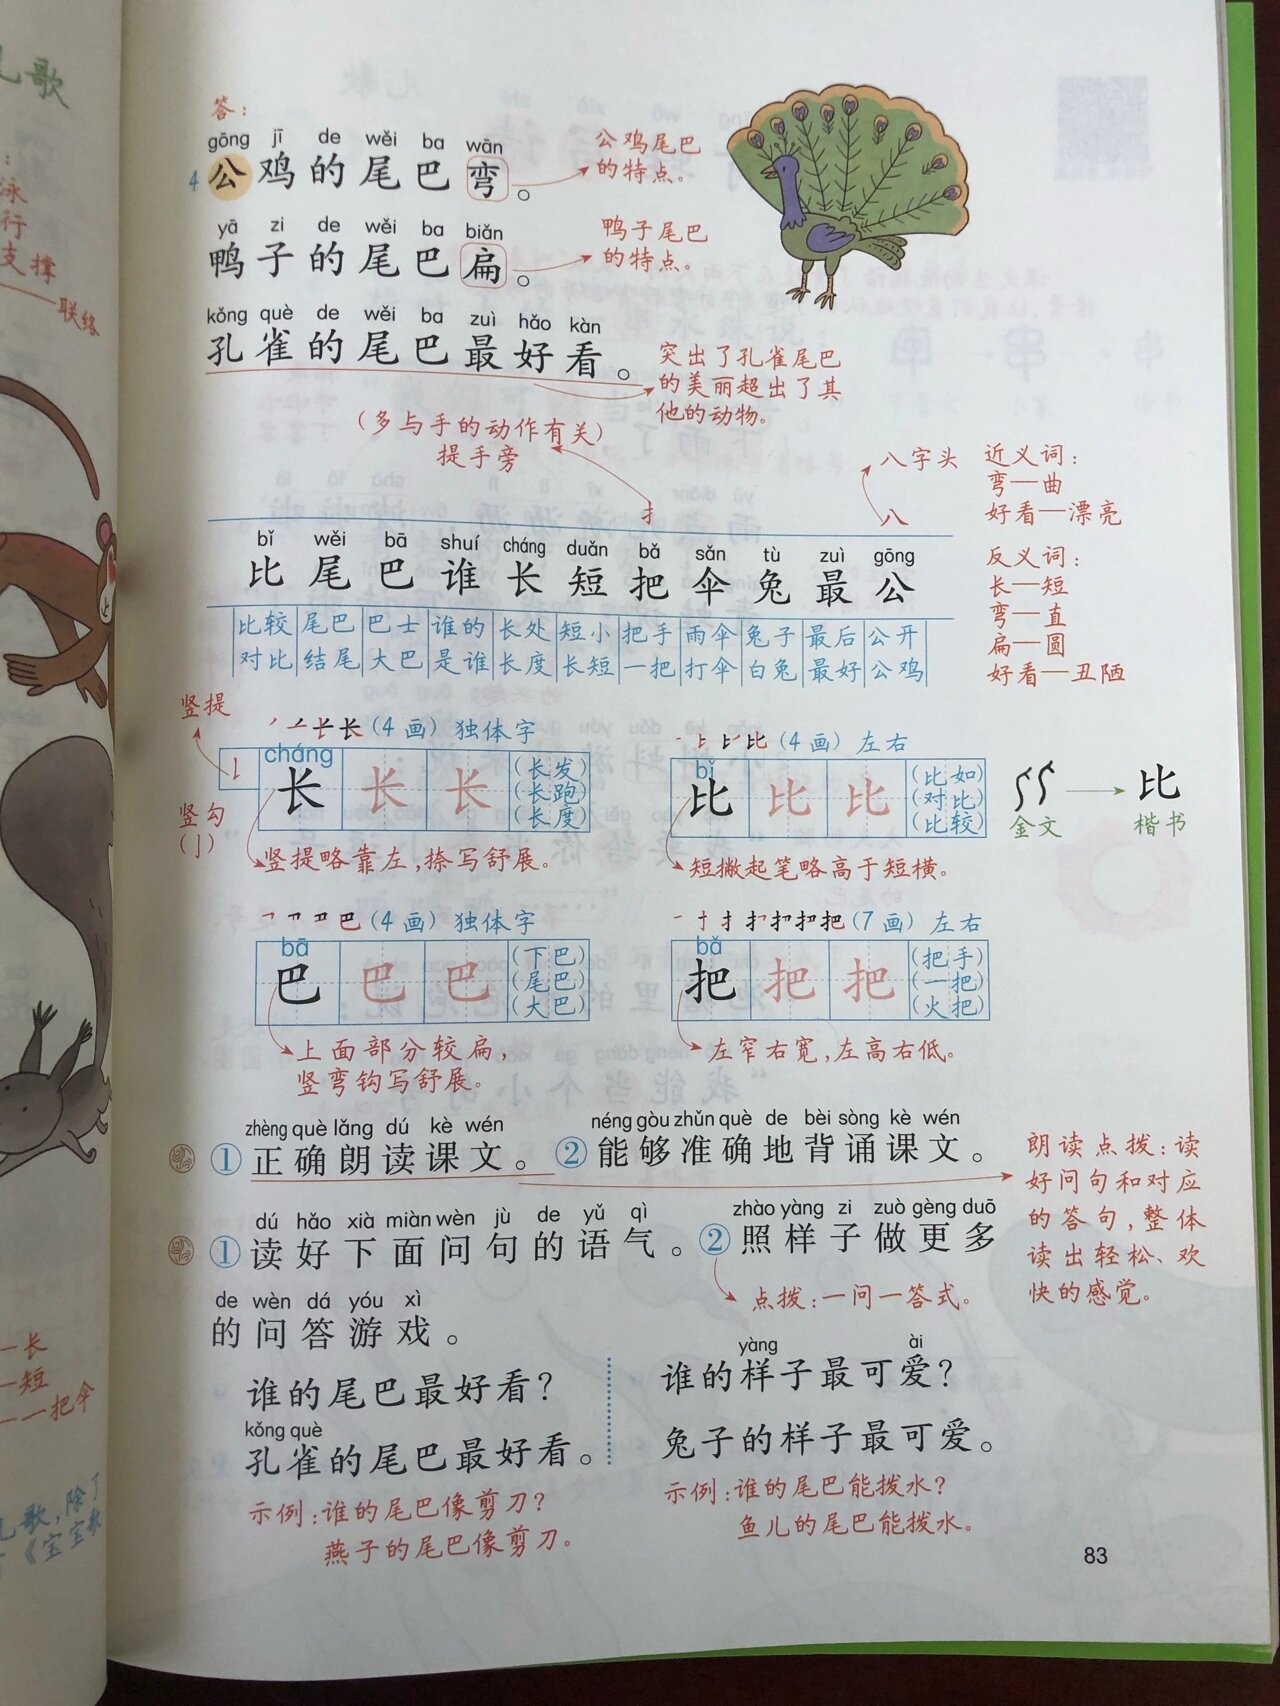 答：
gōng jī de wěi ba wān
4 公鸡的尾巴弯。
公鸡尾巴
的特点。
yā zi de wěi ba biǎn
鸭子的尾巴扁。
鸭子尾巴
的特点。
kǒng què de wěi ba zuì hǎo kàn
孔雀的尾巴最好看。
突出了孔雀尾巴
的美丽超出了其
他的动物。
(多与手的动作有关)
提手旁
扌
八字头
八
近义词：
弯—曲
好看—漂亮
反义词：
长—短
弯—直
扁—圆
好看—丑陋
bǐ wěi bā shuí cháng duǎn bǎ sǎn tù zuì gōng
比 尾 巴 谁 长 短 把 伞 兔 最 公
比较 尾巴 巴士 谁的 长处 短小 把手 雨伞 兔子 最后 公开
对比 结尾 大巴 是谁 长度 长短 一把 打伞 白兔 最好 公鸡
竖提
竖勾
(亅)
(4画) 独体字
cháng
长 长 长
(长发)
(长跑)
(长度)
竖提略靠左，捺写舒展。
(4画) 左右
bǐ
比 比 比
(比如)
(对比)
(比较)
短撇起笔略高于短横。
比
金文
楷书
(4画) 独体字
bā
巴 巴 巴
(下巴)
(尾巴)
(大巴)
上面部分较扁，
竖弯钩写舒展。
(7画) 左右
bǎ
把 把 把
(把手)
(一把)
(火把)
左窄右宽，左高右低。
zhèng què lǎng dú kè wén
①正确朗读课文。
néng gòu zhǔn què de bèi sòng kè wén
②能够准确地背诵课文。
朗读点拨：读
好问句和对应
的答句，整体
读出轻松、欢
快的感觉。
dú hǎo xià miàn wèn jù de yǔ qì
①读好下面问句的语气。
zhào yàng zi zuò gèng duō
②照样子做更多
de wèn dá yóu xì
的问答游戏。
点拨：一问一答式。
谁的尾巴最好看？
kǒng què
孔雀的尾巴最好看。
示例：谁的尾巴像剪刀？
燕子的尾巴像剪刀。
yàng ài
谁的样子最可爱？
兔子的样子最可爱。
示例：谁的尾巴能拨水？
鱼儿的尾巴能拨水。
83
歌
泳
行
支撑
联络
—长
—短
—一把伞
歌，除了
《宝宝